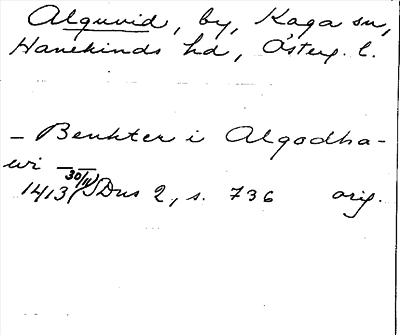 Alguvid, by, Kaga sn,
Hanekinds hd, Österg. l.
– Benkter i Algodha-
wi –
1413 30/11 Dns 2, s. 736 orig.